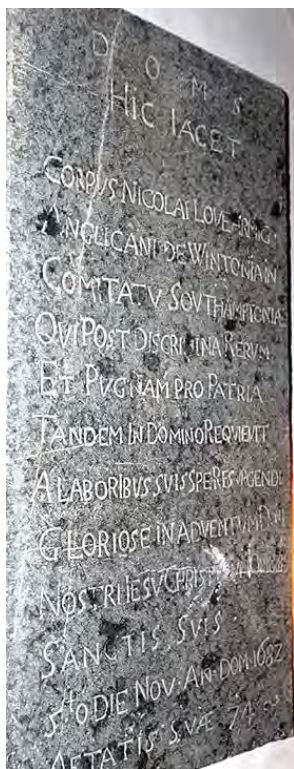 D O M S
HIC IACET
CORPUS NICOLAI LOVE ARMIG.
ANGLICANI DE WINTONIA IN
COMITATV SOVTHAMPTONIAE
QUI POST DISCRIMINA RERUM
ET PUGNAM PRO PATRIA
TANDEM IN DOMINO REQUIEVIT
A LABORIBUS SUIS SPE RESURGENDI
GLORIOSE IN ADVENTUM DNI
NOSTRI IESV CHRISTI
SANCTIS SUIS.
5to DIE NOV. AN. DOM. 1682
AETATIS SVÆ 74